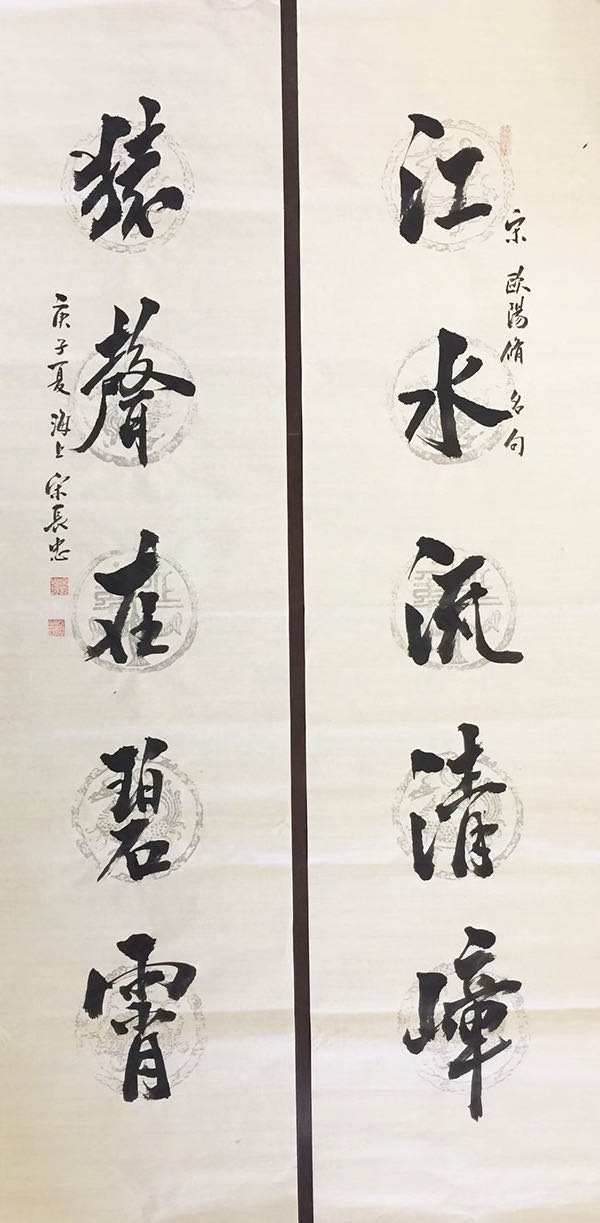 宋 歐陽脩 名句
江水流清嶂
猿聲在碧霄
庚子夏 海上 宋長忠